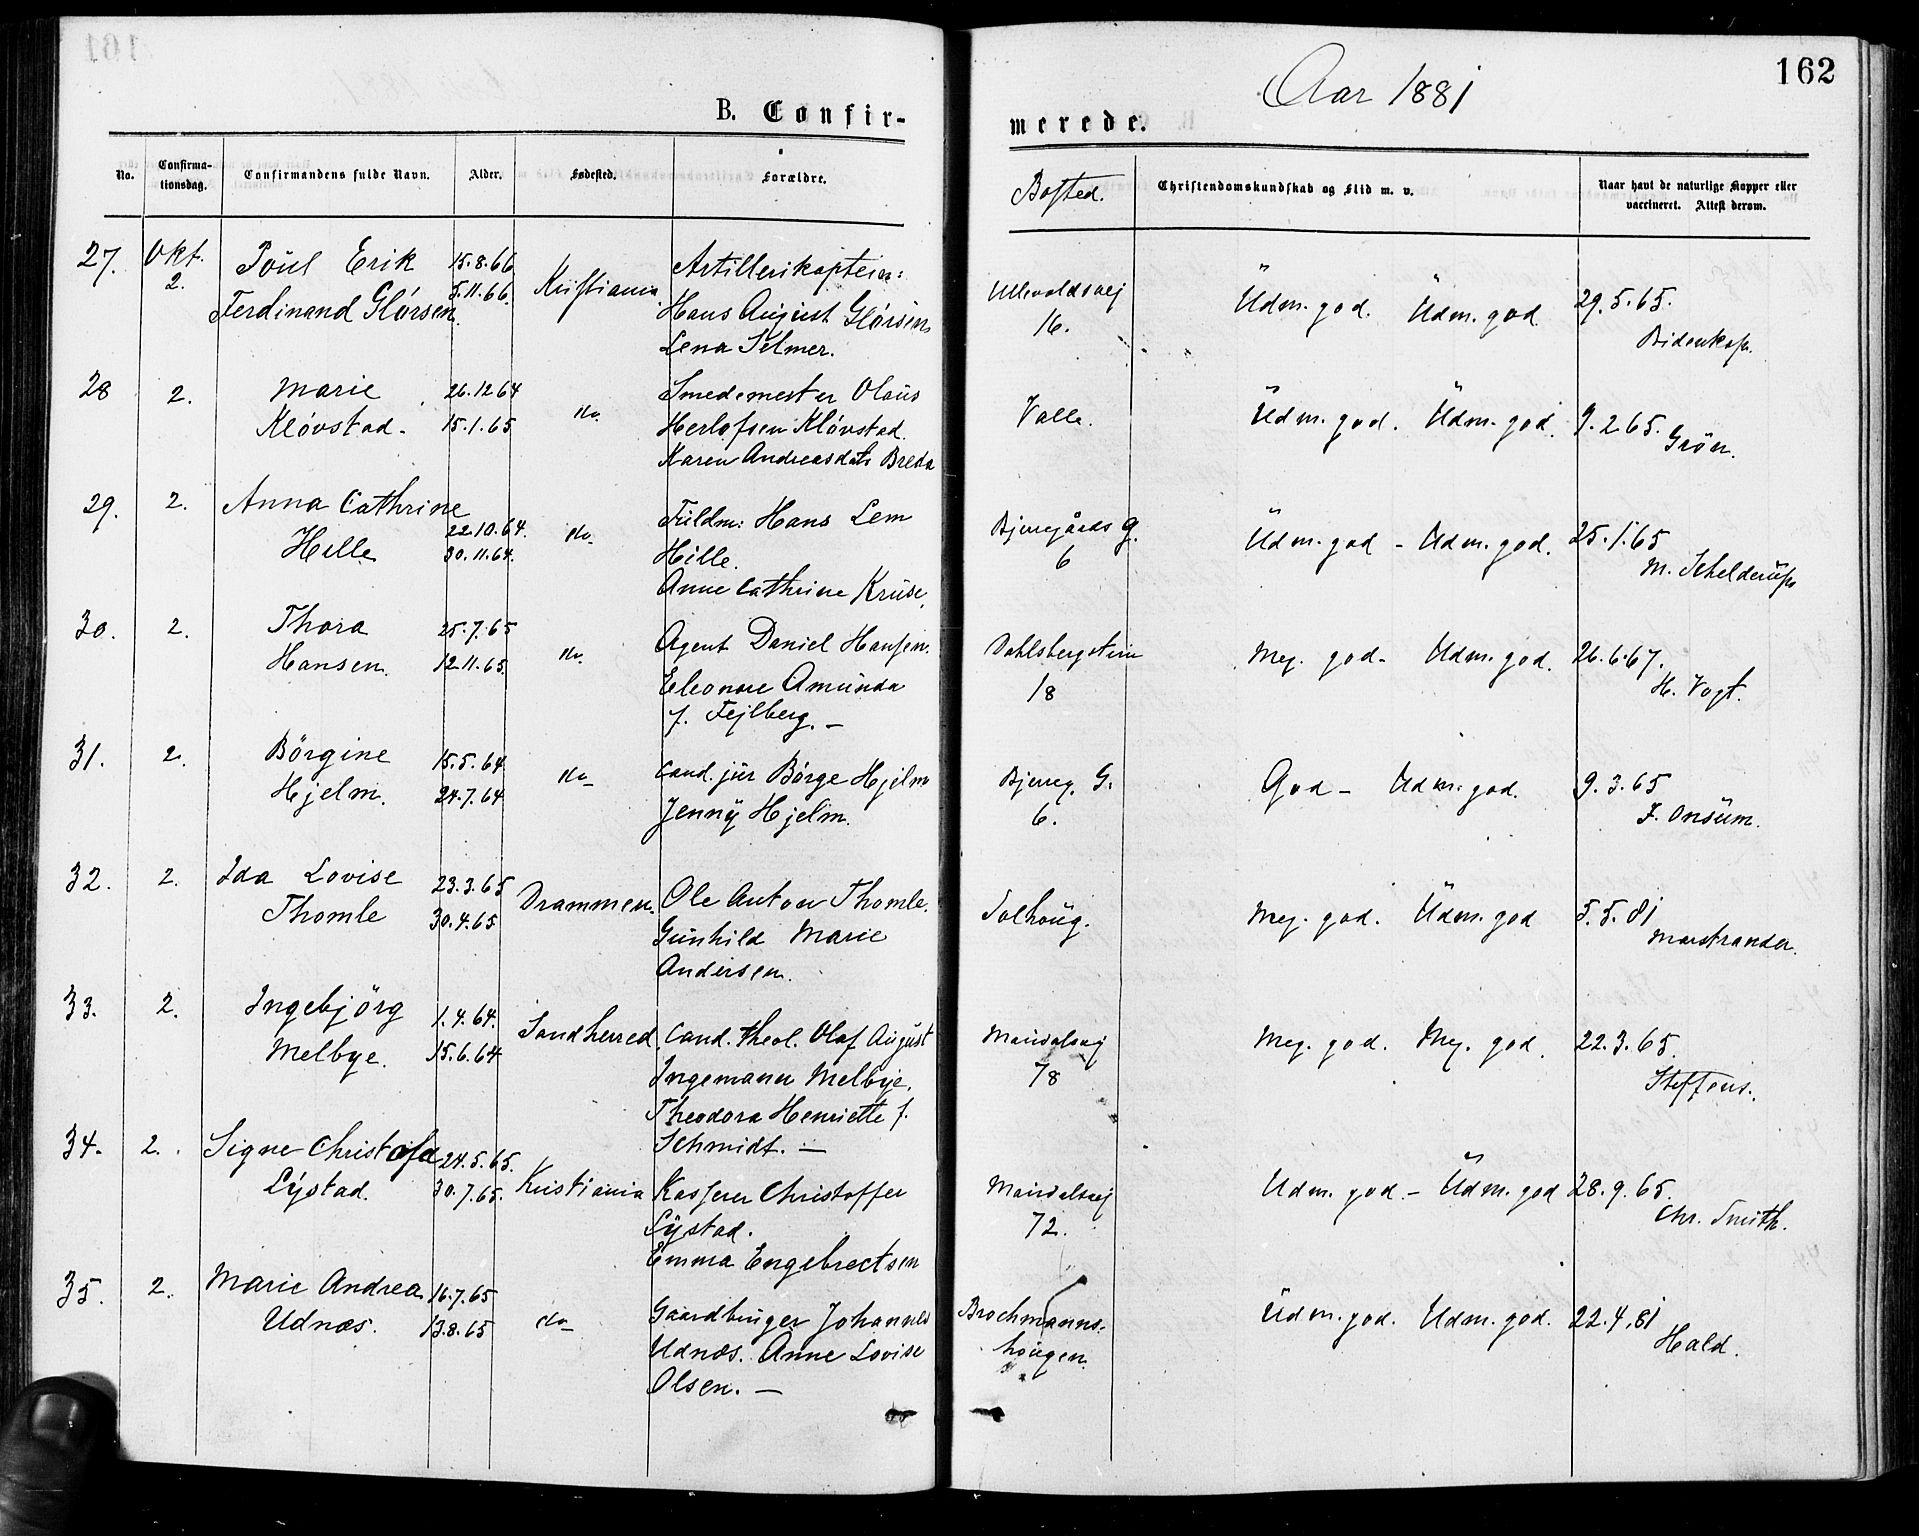 B. Confir-
merede.
Aar 1881
162
No.
Confirma-
tionsdag.
Confirmandens fulde Navn.
Alder.
Fødested.
Forældre.
Bosted.
Christendomskundskab og Flid m. v.
Naar havt de naturlige Kopper eller
vaccineret. Attest derom.
27. Okt. 2. Poul Erik
Ferdinand Glørsen.
15.8.66
5.11.66.
Kristiania
Artillerikaptein:
Hans August Glørsen
Lena Selmer.
Ullevoldsvej
16.
Üdm. god. Üdm. god
29.5.65.
Bidenkap.
28 2. Marie
Kløvstad.
26.12 64
15.1.65
do
Smedemester Olaus
Herlofsen Kløvstad.
Karen Andreasdatr Breda
Valle.
Üdm. god. Üdm. god.
9.2 65.
Grön.
29. 2. Anna Cathrine
Hille
22.10.64.
30.11.64.
do
Fuldm: Hans Lem
Hille.
Anne Cathrine Kruse.
Bjerregårds g.
6
Üdm. god - Udm. god.
25.1.65
M. Schelderup
30. 2. Thora
Hansen.
25.7.65
12.11.65.
do.
Agent Daniel Hansen.
Eleonore Amunda
f. Fejlberg. -
Dahlsbergstien
18
Meg. god - Udm. god.
26.6.67.
H. Vogt.
31. 2. Börgine
Hjelm.
15.5.64
24.7.64
do
Cand. jur Börge Hjelm
Jenny Hjelm.
Bjerreg. G.
6.
God - Udm. god.
9.3.65
F. Onsum.
32. 2. Ida Lovise
Thomle
23.3.65
30.4.65
Drammen.
Ole Anton Thomle.
Gunhild Marie
Andersen.
Solhoug.
Meg. god. Üdm. god
5.5.81
Marstrander.
33. 2. Ingebjörg
Melbye.
1.4.64.
15.6.64
Sandherred
Cand. theol. Olaf August
Ingemann Melbye.
Theodora Henriette f.
Schmidt. -
Maridalsvej
78
Meg. god. Meg. god.
22.3.65.
Steffens.
34. 2. Signe Christofa
Lystad.
24.5.65.
30.7.65.
Kristiania
Kasserer Christoffer
Lystad.
Emma Engebrectsen
Maridalsvej
72.
Udm. god. - Üdm. god
28.9.65.
Chr. Smith.
35. 2. Marie Andrea
Udnæs.
16.7.65
13.8.65
do
Gaardbruger Johannes
Udnæs. Anne Lovise
Olsen. -
Brochmanns-
hougen.
Üdm. god. Udm. god.
22.4.81
Hald.